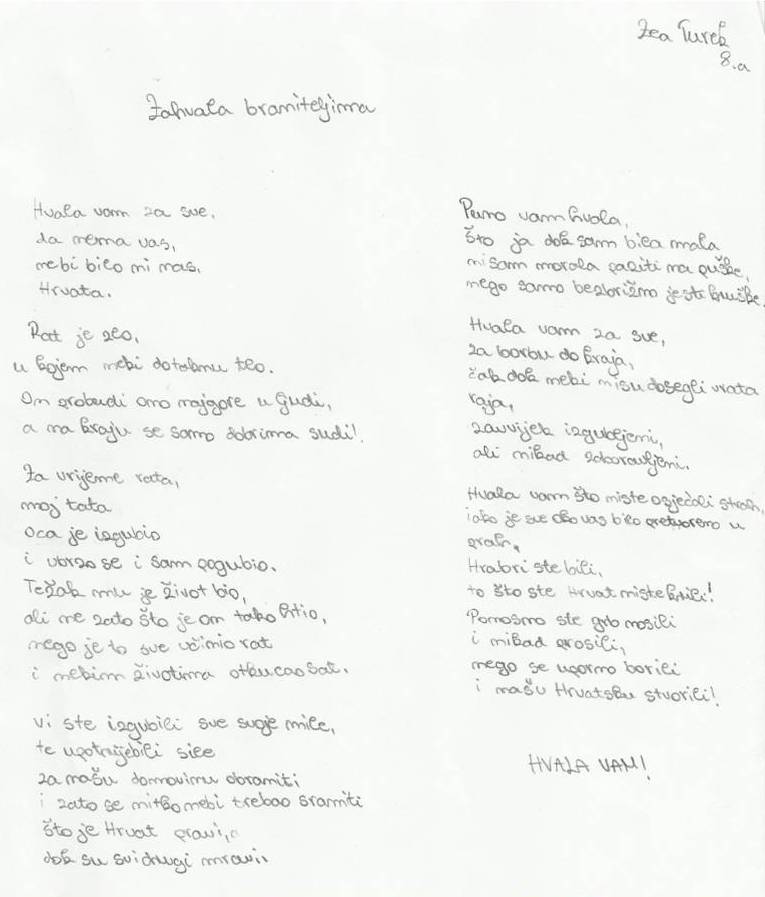 Zea Turek
8.a
Zahvala braniteljima
Hvala vam za sve,
da nema vas,
nebi bilo ni nas,
Hrvata.
Rat je zlo,
u kojem nebi dotaknu tlo.
On probudi ono najgore u ljudi,
a na kraju se samo dobrima sudi!
Za vrijeme rata,
moj tata
oca je izgubio
i ubrzo se i sam pogubio.
Težak mu je život bio,
ali ne zato što je on tako htio,
nego je to sve učinio rat
i nekim životima otkucao sat.
Vi ste izgubili sve svoje mile,
te upotrijebili sile
za našu domovinu obraniti
i zato se nitko nebi trebao sramiti
što je Hrvat pravi,
dok su svi drugi mravi.
Puno vam hvala,
što ja dok sam bila mala
nisam morala paziti na puške,
nego samo bezbrižno jesti kruške.
Hvala vam za sve,
za borbu do kraja,
čak dok neki nisu dosegli vrata
raja,
zauvijek izgubljeni,
ali nikad zaboravljeni.
Hvala vam što niste osjećali strah,
iako je sve oko vas bilo pretvoreno u
prah,
Hrabri ste bili,
to što ste Hrvat niste krili!
Ponosno ste grb nosili
i nikad prosili,
nego se uporno borili
i našu Hrvatsku stvorili!
HVALA VAM!